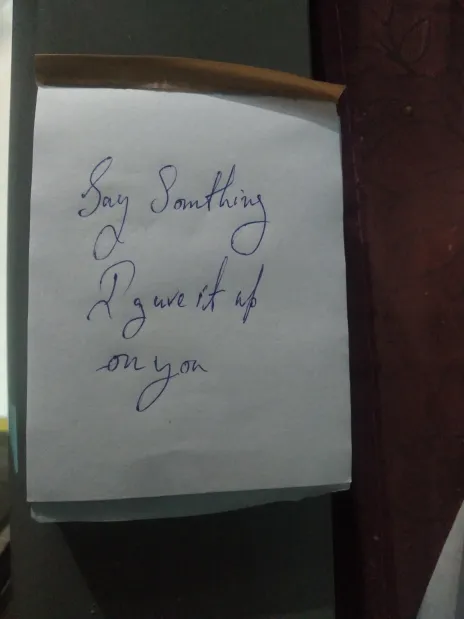 Say Somthing
I guve it up
on you